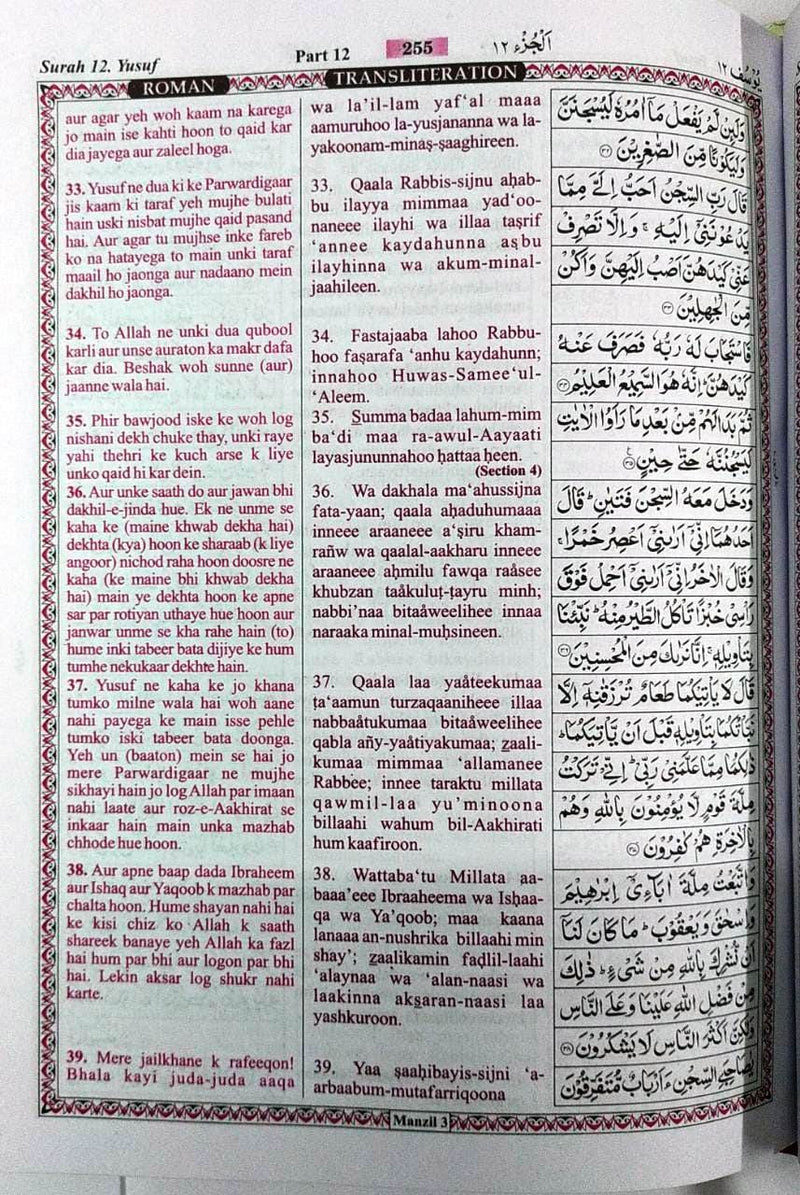 Surah 12. Yusuf
Part 12
255
اَلْجُزْء ١٢
يُوْسُف ١٢
ROMAN
TRANSLITERATION
aur agar yeh woh kaam na karega
jo main ise kahti hoon to qaid kar
dia jayega aur zaleel hoga.
33. Yusuf ne dua ki ke Parwardigaar
jis kaam ki taraf yeh mujhe bulati
hain uski nisbat mujhe qaid pasand
hai. Aur agar tu mujhse inke fareb
ko na hatayega to main unki taraf
maail ho jaonga aur nadaano mein
dakhil ho jaonga.
34. To Allah ne unki dua qubool
karli aur unse auraton ka makr dafa
kar dia. Beshak woh sunne (aur)
jaanne wala hai.
35. Phir bawjood iske ke woh log
nishani dekh chuke thay, unki raye
yahi thehri ke kuch arse k liye
unko qaid hi kar dein.
36. Aur unke saath do aur jawan bhi
dakhil-e-jinda hue. Ek ne unme se
kaha ke (maine khwab dekha hai)
dekhta (kya) hoon ke sharaab (k liye
angoor) nichod raha hoon doosre ne
kaha (ke maine bhi khwab dekha
hai) main ye dekhta hoon ke apne
sar par rotiyan uthaye hue hoon aur
janwar unme se kha rahe hain (to)
hume inki tabeer bata dijiye ke hum
tumhe nekukaar dekhte hain.
37. Yusuf ne kaha ke jo khana
tumko milne wala hai woh aane
nahi payega ke main isse pehle
tumko iski tabeer bata doonga.
Yeh un (baaton) mein se hai jo
mere Parwardigaar ne mujhe
sikhayi hain jo log Allah par imaan
nahi laate aur roz-e-Aakhirat se
inkaar hain main unka mazhab
chhode hue hoon.
38. Aur apne baap dada Ibraheem
aur Ishaq aur Yaqoob k mazhab par
chalta hoon. Hume shayan nahi hai
ke kisi chiz ko Allah k saath
shareek banaye yeh Allah ka fazl
hai hum par bhi aur logon par bhi
hai. Lekin aksar log shukr nahi
karte.
39. Mere jailkhane k rafeeqon!
Bhala kayi juda-juda aaqa
wa la’il-lam yaf‘al maaa
aamuruhoo la-yusjananna wa la-
yakoonam-minaṣ-ṣaaghireen.
33. Qaala Rabbis-sijnu aḥab-
bu ilayya mimmaa yad‘oo-
naneee ilayhi wa illaa taṣrif
‘annee kaydahunna aṣbu
ilayhinna wa akum-minal-
jaahileen.
34. Fastajaaba lahoo Rabbu-
hoo faṣarafa ‘anhu kaydahunn;
innahoo Huwas-Samee‘ul-
‘Aleem.
35. Summa badaa lahum-mim
ba‘di maa ra-awul-Aayaati
layasjununnahoo ḥattaa ḥeen.
(Section 4)
36. Wa dakhala ma‘ahussijna
fata-yaan; qaala aḥaduhumaaa
inneee araaneee a‘ṣiru kham-
rañw wa qaalal-aakharu inneee
araaneee aḥmilu fawqa raåsee
khubzan taåkuluṭ-ṭayru minh;
nabbi’naa bitaåweelihee innaa
naraaka minal-muḥsineen.
37. Qaala laa yaåteekumaa
ṭa‘aamun turzaqaaniheee illaa
nabbaåtukumaa bitaåweelihee
qabla añy-yaåtiyakumaa; zaali-
kumaa mimmaa ‘allamanee
Rabbee; innee taraktu millata
qawmil-laa yu’minoona
billaahi wahum bil-Aakhirati
hum kaafiroon.
38. Wattaba‘tu Millata aa-
baaa’eee Ibraaheema wa Isḥaa-
qa wa Ya‘qoob; maa kaana
lanaaa an-nushrika billaahi min
shay’; zaalikamin faḍlil-laahi
‘alaynaa wa ‘alan-naasi wa
laakinna aksaran-naasi laa
yashkuroon.
39. Yaa ṣaaḥibayis-sijni ‘a-
arbaabum-mutafarriqoona
وَلَئِنْ لَّمْ يَفْعَلْ مَآ اٰمُرُهٗ لَيُسْجَنَنَّ
وَلَيَكُوْنًا مِّنَ الصّٰغِرِيْنَ ٣٢
قَالَ رَبِّ السِّجْنُ اَحَبُّ اِلَيَّ مِمَّا
يَدْعُوْنَنِيْٓ اِلَيْهِ ۚ وَاِلَّا تَصْرِفْ
عَنِّيْ كَيْدَهُنَّ اَصْبُ اِلَيْهِنَّ وَاَكُنْ
مِّنَ الْجٰهِلِيْنَ ٣٣
فَاسْتَجَابَ لَهٗ رَبُّهٗ فَصَرَفَ عَنْهُ
كَيْدَهُنَّ ؕ اِنَّهٗ هُوَ السَّمِيْعُ الْعَلِيْمُ ٣٤
ثُمَّ بَدَا لَهُمْ مِّنْۢ بَعْدِ مَا رَاَوُا الْاٰيٰتِ
لَيَسْجُنُنَّهٗ حَتّٰى حِيْنٍ ٣٥
وَدَخَلَ مَعَهُ السِّجْنَ فَتَيٰنِ ؕ قَالَ
اَحَدُهُمَآ اِنِّيْٓ اَرٰىنِيْٓ اَعْصِرُ خَمْرًا ۚ
وَقَالَ الْاٰخَرُ اِنِّيْٓ اَرٰىنِيْٓ اَحْمِلُ فَوْقَ
رَاْسِيْ خُبْزًا تَاْكُلُ الطَّيْرُ مِنْهُ ؕ نَبِّئْنَا
بِتَاْوِيْلِهٖ ۚ اِنَّا نَرٰىكَ مِنَ الْمُحْسِنِيْنَ ٣٦
قَالَ لَا يَاْتِيْكُمَا طَعَامٌ تُرْزَقٰنِهٖٓ اِلَّا
نَبَّاْتُكُمَا بِتَاْوِيْلِهٖ قَبْلَ اَنْ يَّاْتِيَكُمَا ؕ
ذٰلِكُمَا مِمَّا عَلَّمَنِيْ رَبِّيْ ؕ اِنِّيْ تَرَكْتُ
مِلَّةَ قَوْمٍ لَّا يُؤْمِنُوْنَ بِاللّٰهِ وَهُمْ
بِالْاٰخِرَةِ هُمْ كٰفِرُوْنَ ٣٧
وَاتَّبَعْتُ مِلَّةَ اٰبَآءِيْٓ اِبْرٰهِيْمَ
وَاِسْحٰقَ وَيَعْقُوْبَ ؕ مَا كَانَ لَنَآ
اَنْ نُّشْرِكَ بِاللّٰهِ مِنْ شَيْءٍ ؕ ذٰلِكَ
مِنْ فَضْلِ اللّٰهِ عَلَيْنَا وَعَلَى النَّاسِ
وَلٰكِنَّ اَكْثَرَ النَّاسِ لَا يَشْكُرُوْنَ ٣٨
يٰصَاحِبَيِ السِّجْنِ ءَاَرْبَابٌ مُّتَفَرِّقُوْنَ
Manzil 3